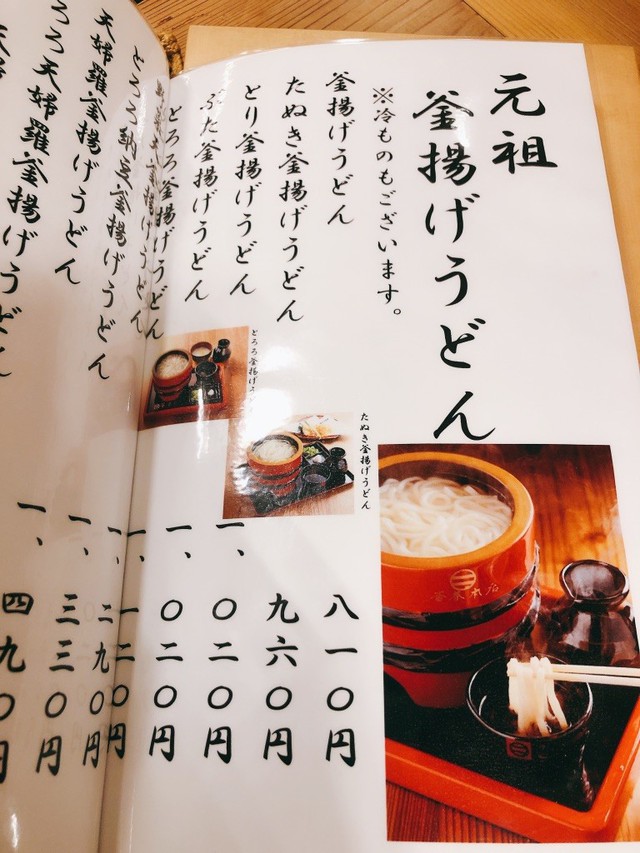 元祖
釜揚げうどん
※冷ものもございます。
釜揚げうどん 八一〇円
たぬき釜揚げうどん 九六〇円
とり釜揚げうどん 一、〇二〇円
ぶた釜揚げうどん 一、〇二〇円
とろろ釜揚げうどん 一、一二〇円
とろろ納豆釜揚げうどん 一、二九〇円
天婦羅釜揚げうどん 一、三三〇円
とろろ天婦羅釜揚げうどん 一、四九〇円
たぬき釜揚げうどん
とろろ釜揚げ